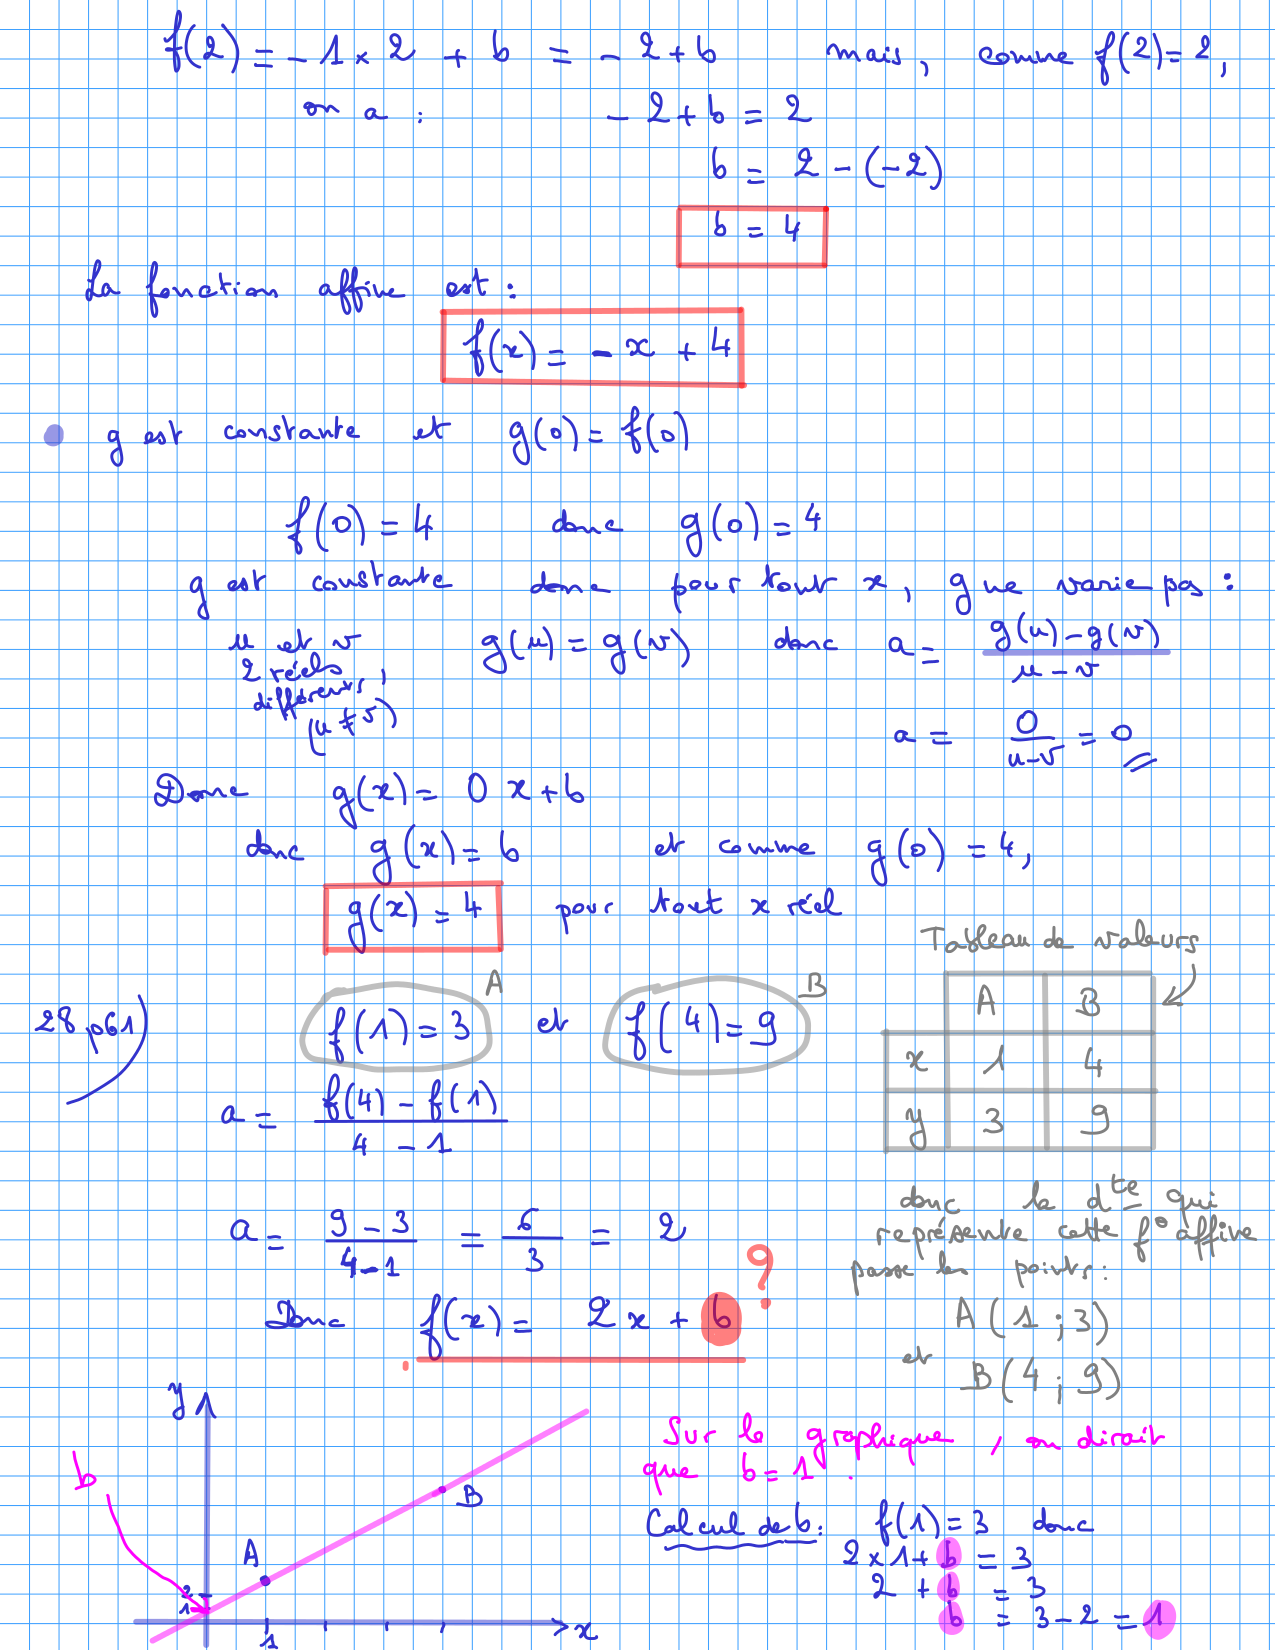 f(2) = - 1 × 2 + b = - 2 + b mais, comme f(2) = 2,
on a : - 2 + b = 2
b = 2 - (-2)
b = 4
La fonction affine est :
f(x) = - x + 4
g est constante et g(0) = f(0)
f(0) = 4 donc g(0) = 4
g est constante donc pour tout x, g ne varie pas :
u et v g(u) = g(v) donc a = (g(u) - g(v))/(u - v)
2 réels
différents,
(u ≠ v)
a = 0/(u-v) = 0
Donc g(x) = 0 x + b
donc g(x) = b et comme g(0) = 4,
g(x) = 4 pour tout x réel
Tableau de valeurs
28 p61) f(1) = 3 A et f(4) = 9 B
A B
x 1 4
y 3 9
a = (f(4) - f(1))/(4 - 1)
a = (9 - 3)/(4 - 1) = 6/3 = 2
donc la dte qui
représente cette f° affine
passe les points :
A(1 ; 3)
et
B(4 ; 9)
Donc f(x) = 2 x + b ?
y
b
B
A
2
1
1
x
Sur le graphique, on dirait
que b = 1.
Calcul de b : f(1) = 3 donc
2 × 1 + b = 3
2 + b = 3
b = 3 - 2 = 1